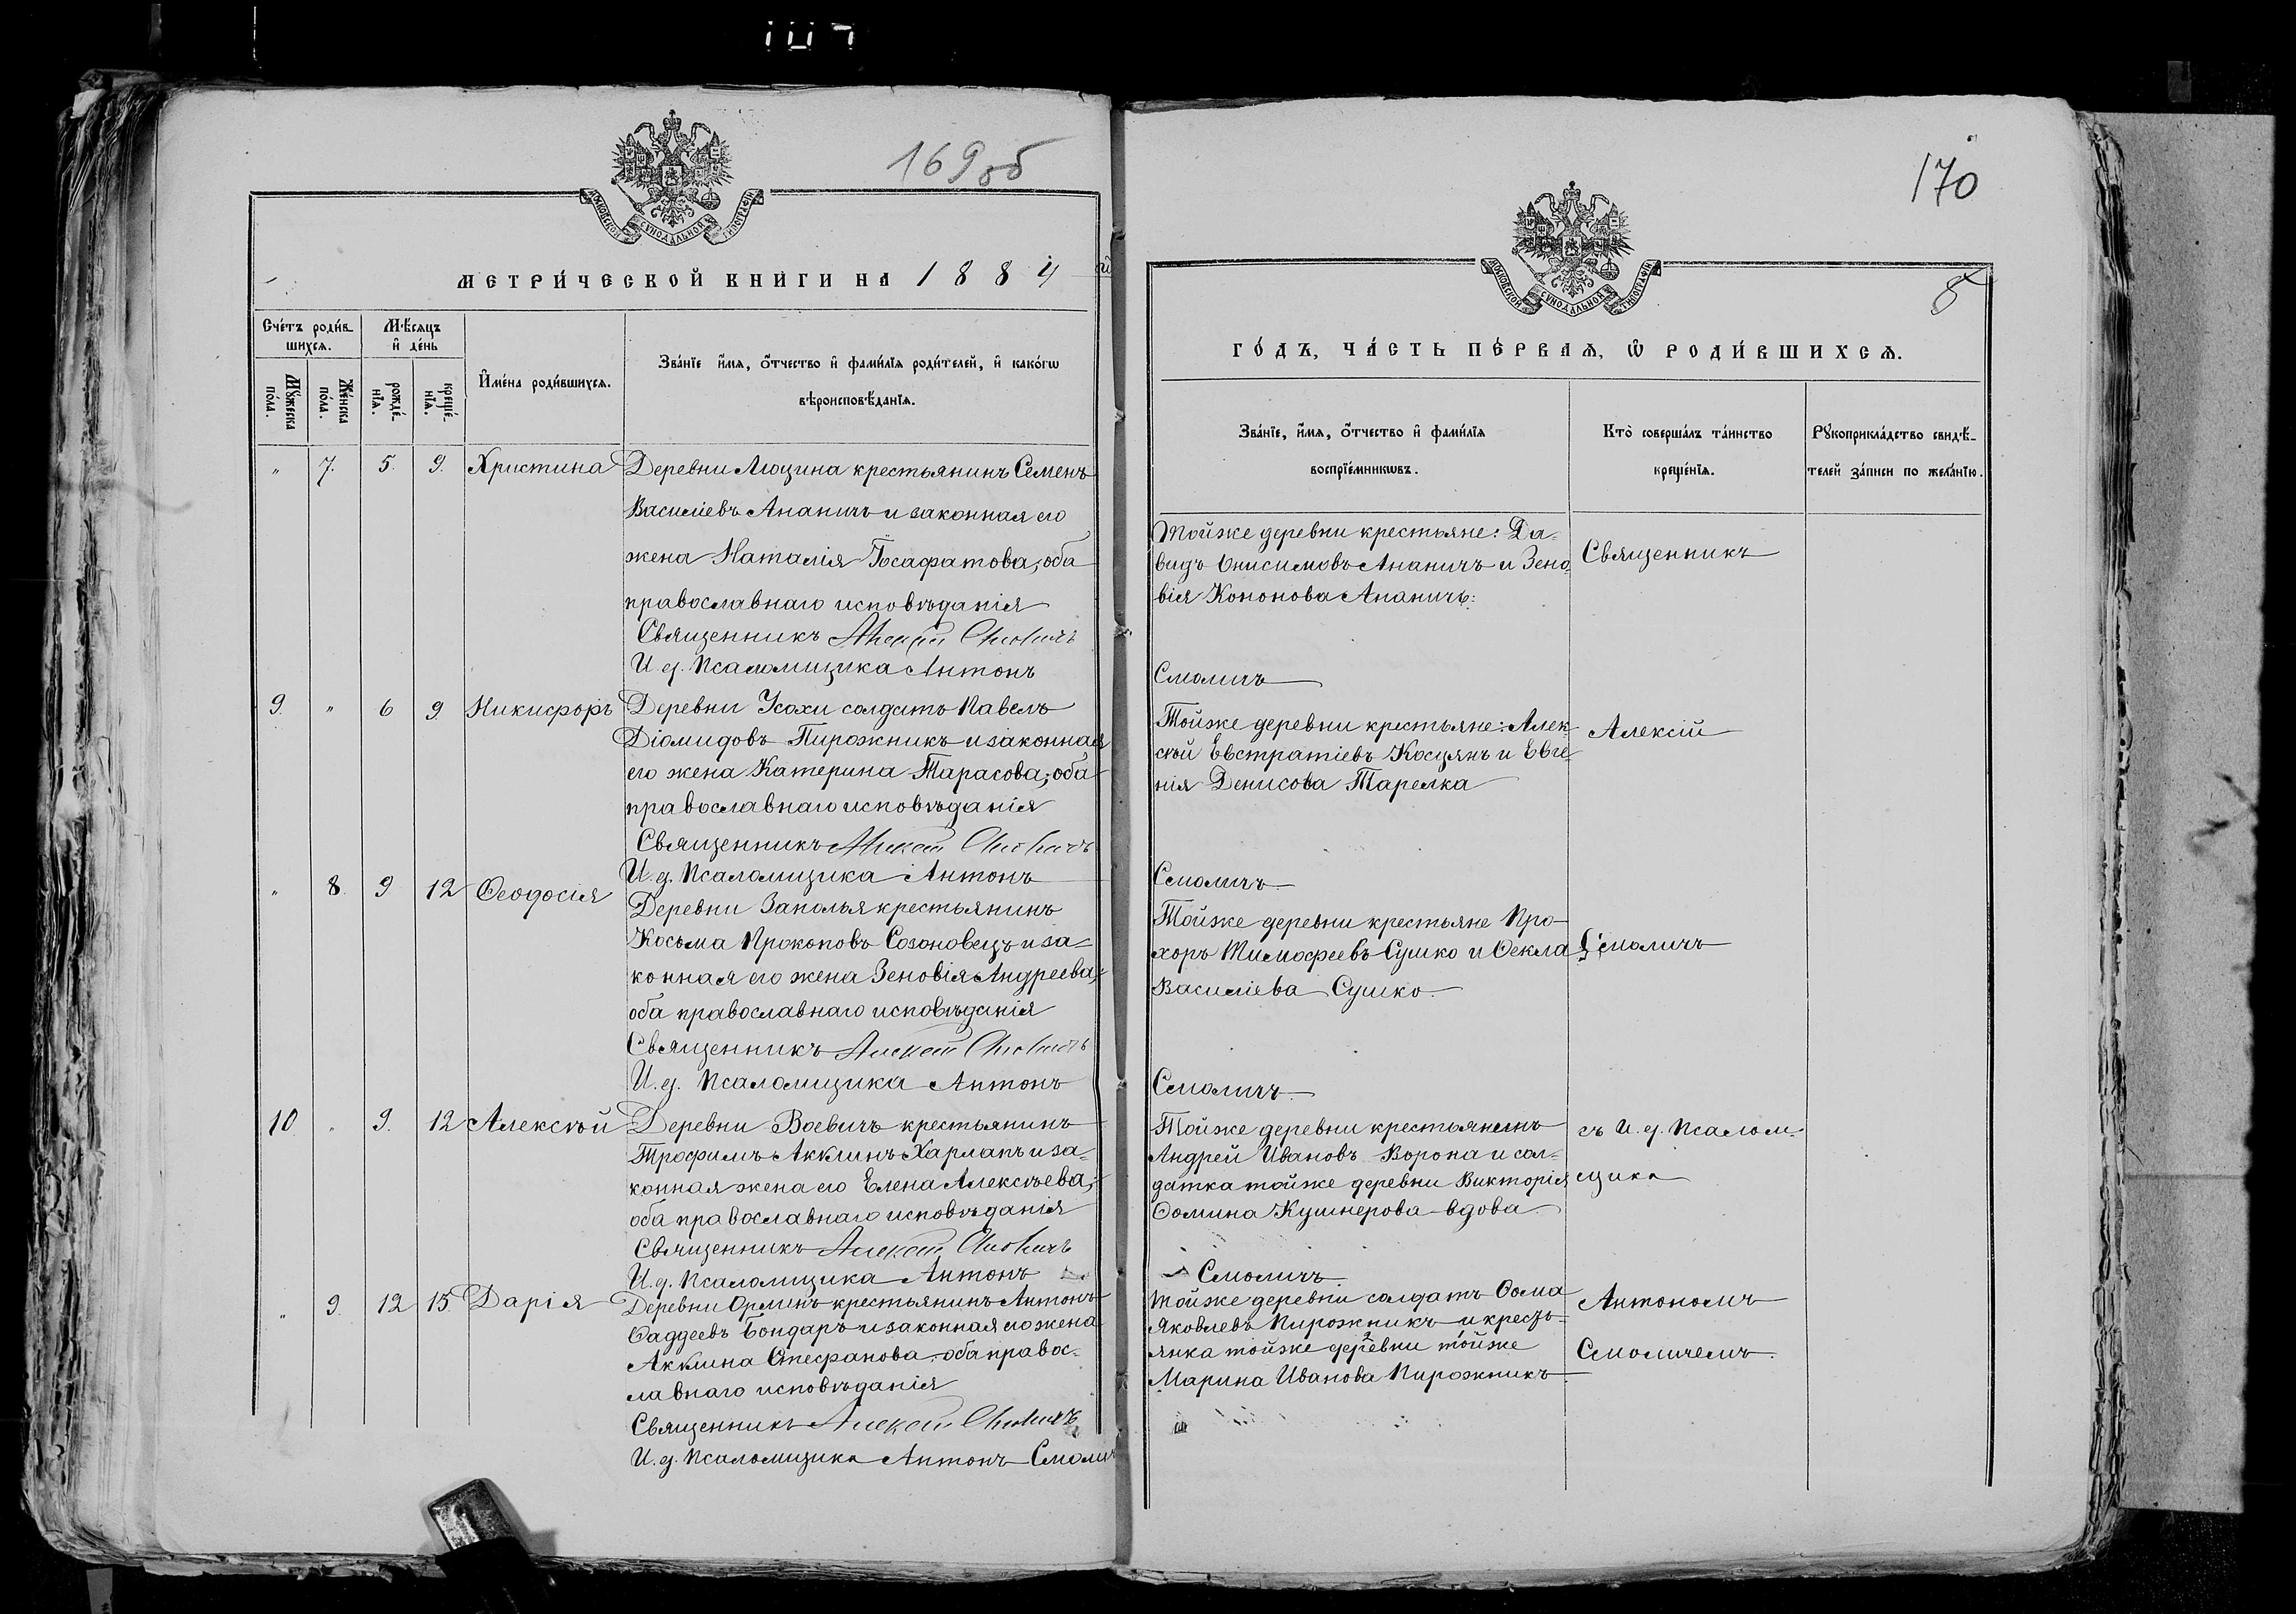 169об
МОСКОВСКОЙ СѴНОДАЛЬНОЙ ТИПОГРАФІИ
МЕТРИ́ЧЕСКОЙ КНИ́ГИ НА 1884
Сче́тъ роди́в-
шихсѧ.
Мѣ́сѧцъ
и҆ де́нь
Мꙋ́жеска
по́ла.
Же́нска
по́ла.
рожде́-
нїѧ.
креще́-
нїѧ.
И҆мена̀ роди́вшихсѧ.
Зва́нїе и҆́мѧ, ѻ҆́тчество и҆ фами́лїѧ роди́телей, и҆ како́гѡ
вѣроисповѣ́данїѧ.
„ 7. 5. 9. Христина Деревни Люцина крестьянинъ Семенъ
Василіевъ Ананичъ и законная его
жена Наталія Іосафатова, оба
православнаго исповѣданія
Священникъ Алексій Смоличъ
И. д. Псаломщика Антонъ
9. „ 6 9. Никифоръ Деревни Усохи солдатъ Павелъ
Діомидовъ Пирожникъ и законная
его жена Катерина Тарасова, оба
православнаго исповѣданія
Священникъ Алексій Смоличъ
И. д. Псаломщика Антонъ
„ 8. 9 12 Ѳеодосія
Деревни Заполья крестьянинъ
Косьма Прокоповъ Созоновецъ и за-
конная его жена Зеновія Андреева,
оба православнаго исповѣданія
Священникъ Алексій Смоличъ
И. д. Псаломщика Антонъ
10 „ 9. 12 Алексѣй Деревни Воевичъ крестьянинъ
Трофимъ Акклинъ Харланъ и за-
конная жена его Елена Алексѣева,
оба православнаго исповѣданія
Священникъ Алексій Смоличъ
И. д. Псаломщика Антонъ
„ 9. 12 15. Дарія Деревни Орлинъ крестьянинъ Антонъ
Ѳаддеевъ Бондаръ и законная его жена
Акклина Стефанова, оба правос-
лавнаго исповѣданія
Священникъ Алексій Смоличъ
И. д. Псаломщика Антонъ Смолич
170
МОСКОВСКОЙ СѴНОДАЛЬНОЙ ТИПОГРАФІИ
ГО́ДЪ, ЧА́СТЬ ПЕ́РВАѦ, Ѡ҆ РОДИ́ВШИХСѦ.
Зва́нїе, и҆́мѧ, ѻ҆́тчество и҆ фами́лїѧ
воспрїе́мникѡвъ.
Кто̀ соверша́лъ та́инство
креще́нїѧ.
Рꙋкоприкла́дство свидѣ́-
телей за́писи по жела́нїю.
Тойже деревни крестьяне: Да-
видъ Онисимовъ Ананичъ и Зено-
вія Кононова Ананичъ.
Священникъ
Смоличъ
Тойже деревни крестьяне: Алек-
сѣй Евстратіевъ Косцянъ и Евге-
нія Денисова Тарелка
Алексій
Смоличъ
Тойже деревни крестьяне Про-
хоръ Тимофеевъ Сушко и Ѳекла
Василіева Сушко.
Смоличъ
Смоличъ
Тойже деревни крестьянинъ
Андрей Ивановъ Ворона и сол-
датка тойже деревни Викторія
Ѳомина Кушнерова вдова
съ И. д. Псалом-
щика
Смоличъ.
Тойже деревни солдатъ Ѳома
Яковлевъ Пирожникъ и кресть-
янка тойже деревни тойже
Марина Иванова Пирожникъ
Антономъ
Смоличемъ.